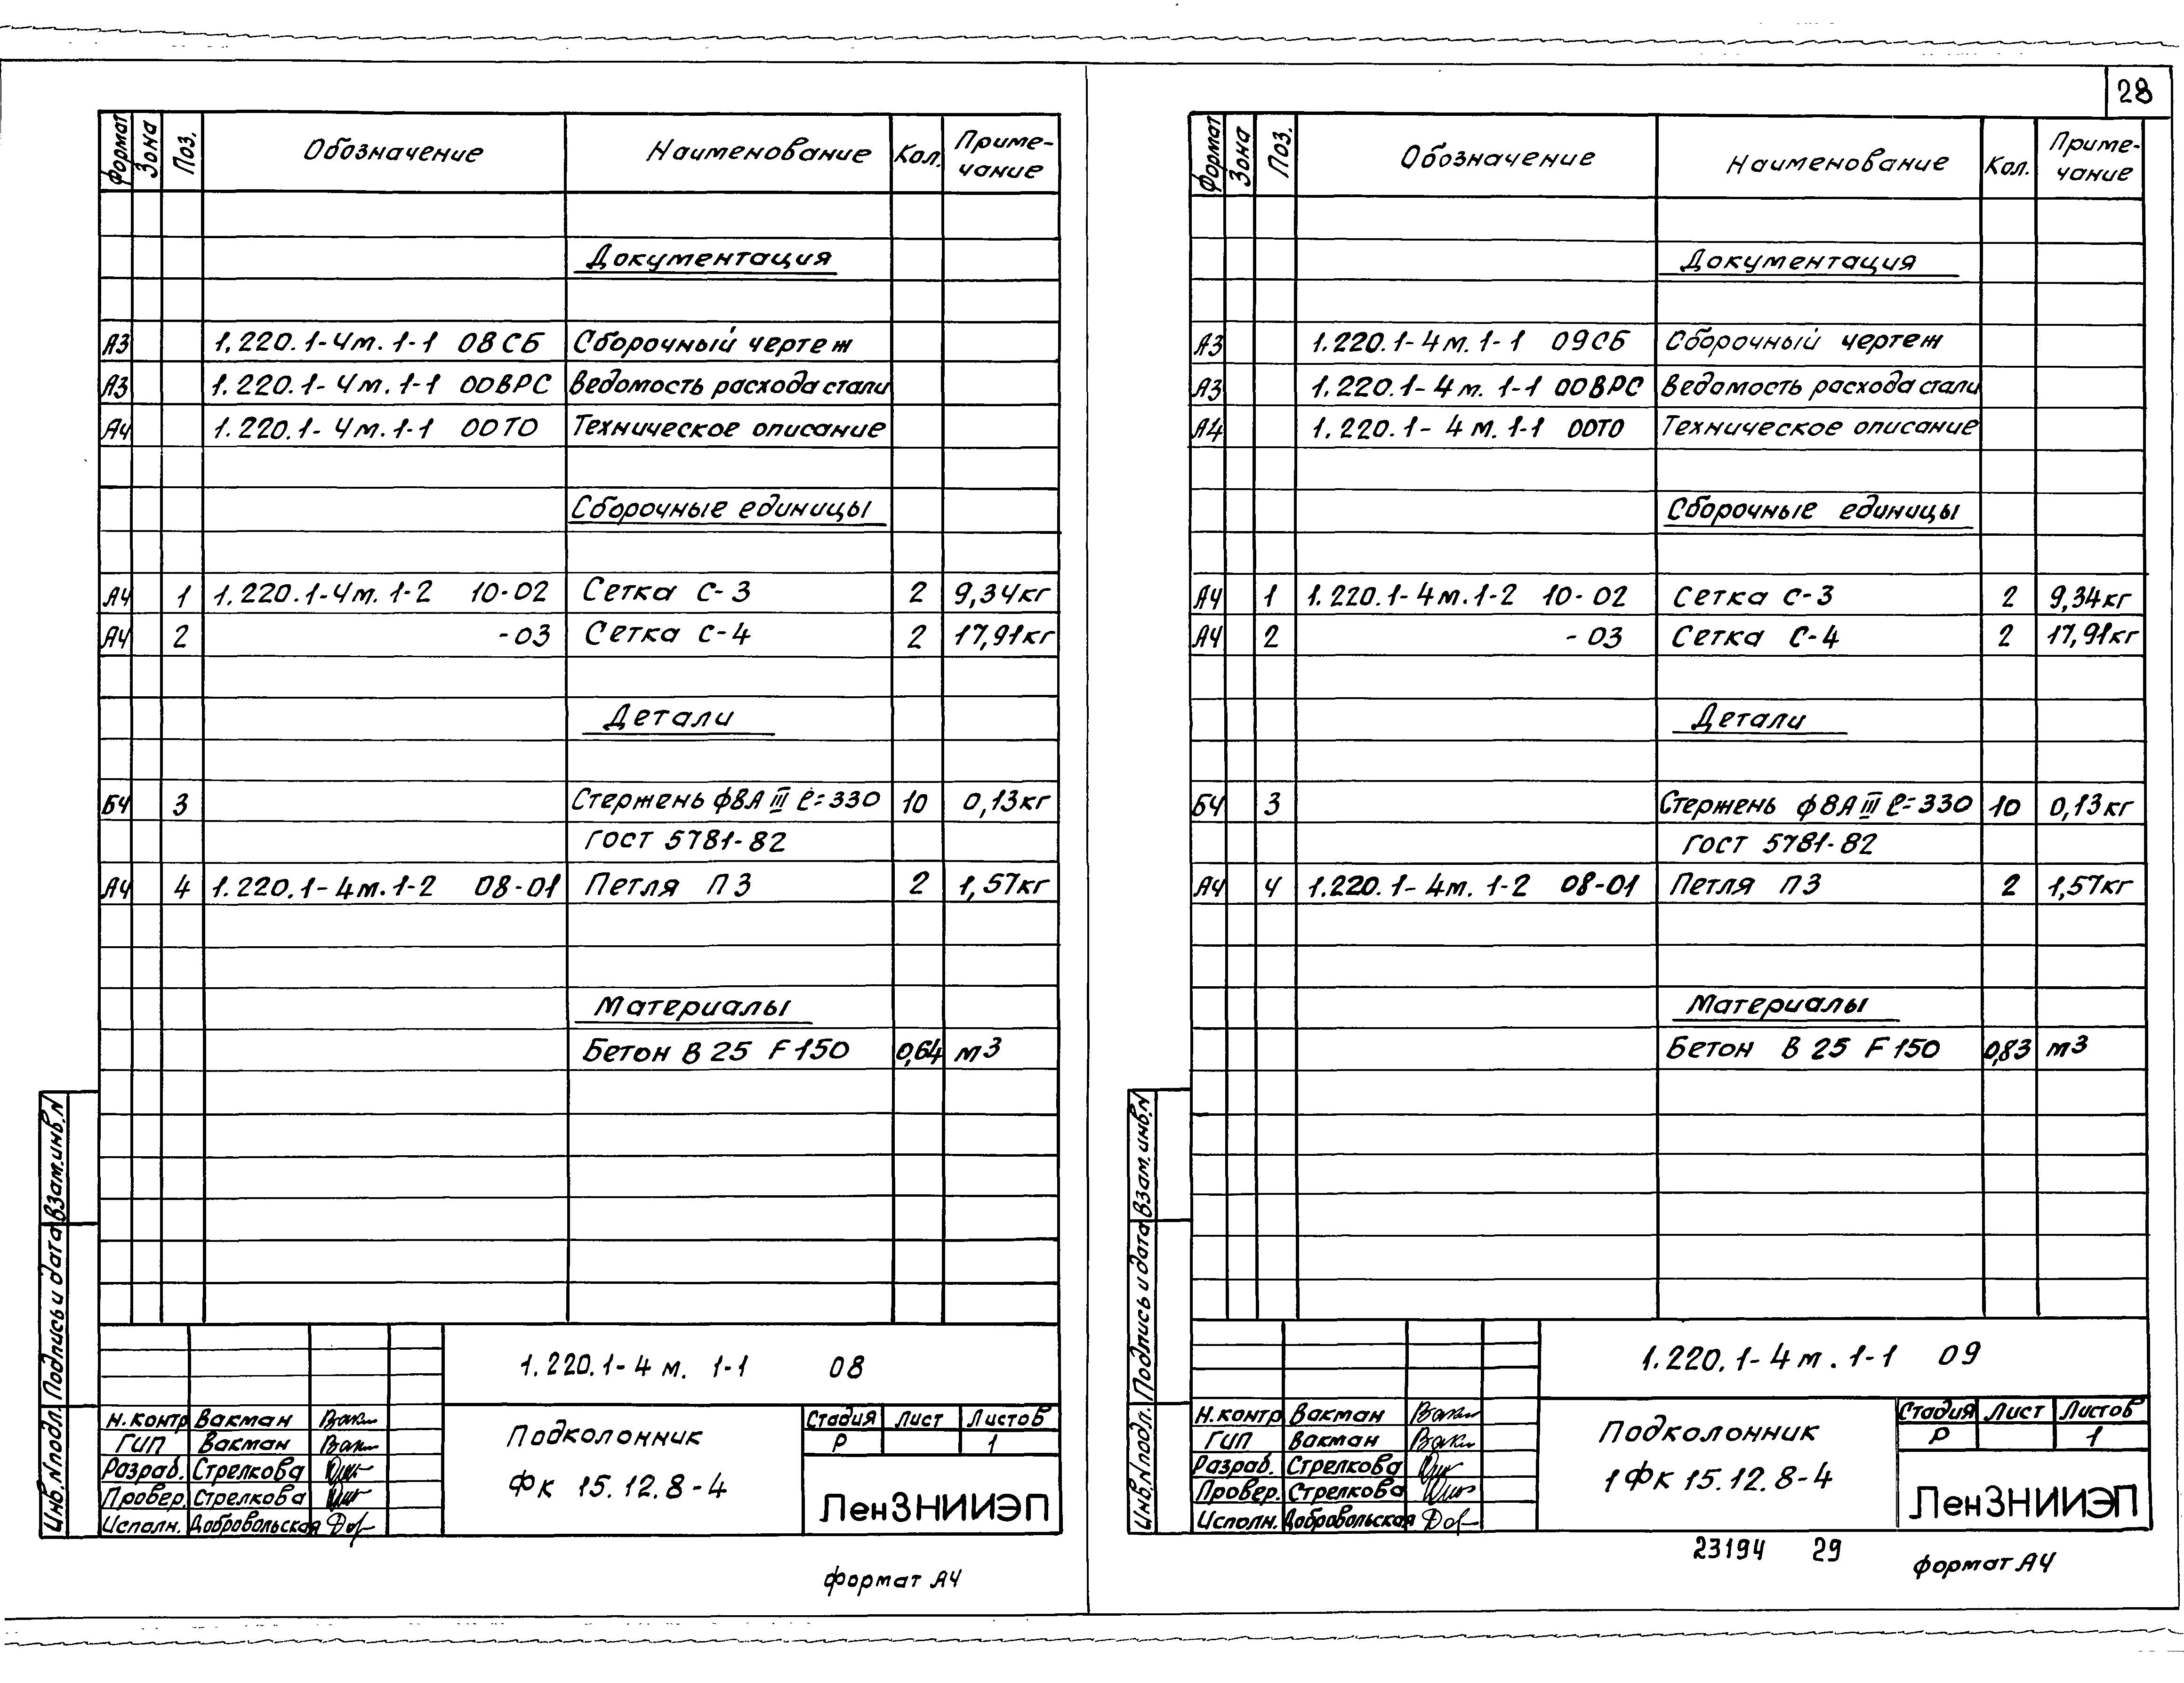 28
Формат Зона Поз. Обозначение Наименование Кол. Приме-
чание
Документация
А3 1.220.1-4м.1-1 08СБ Сборочный чертеж
А3 1.220.1-4м.1-1 00ВРС Ведомость расхода стали
А4 1.220.1-4м.1-1 00ТО Техническое описание
Сборочные единицы
А4 1 1.220.1-4м.1-2 10-02 Сетка С-3 2 9,34кг
А4 2 -03 Сетка С-4 2 17,91кг
Детали
БЧ 3 Стержень ф8АIII ℓ=330 10 0,13кг
ГОСТ 5781-82
А4 4 1.220.1-4м.1-2 08-01 Петля П3 2 1,57кг
Материалы
Бетон В25 F150 0,64 м3
Взам.инв.N
Подпись и дата
Инв.Nподл.
1.220.1-4м. 1-1 08
Н.контр Вакман
ГИП Вакман
Разраб. Стрелкова
Провер. Стрелкова
Исполн. Добровольская
Подколонник
Фк 15.12.8-4
Стадия Лист Листов
Р 1
ЛенЗНИИЭП
формат А4
Формат Зона Поз. Обозначение Наименование Кол. Приме-
чание
Документация
А3 1.220.1-4м.1-1 09СБ Сборочный чертеж
А3 1.220.1-4м.1-1 00ВРС Ведомость расхода стали
А4 1.220.1-4м.1-1 00ТО Техническое описание
Сборочные единицы
А4 1 1.220.1-4м.1-2 10-02 Сетка С-3 2 9,34кг
А4 2 -03 Сетка С-4 2 17,91кг
Детали
БЧ 3 Стержень ф8АIII ℓ=330 10 0,13кг
ГОСТ 5781-82
А4 4 1.220.1-4м.1-2 08-01 Петля П3 2 1,57кг
Материалы
Бетон В25 F150 0,83 м3
Взам.инв.N
Подпись и дата
Инв.Nподл.
1.220.1-4м.1-1 09
Н.контр Вакман
ГИП Вакман
Разраб. Стрелкова
Провер. Стрелкова
Исполн. Добровольская
Подколонник
1Фк 15.12.8-4
Стадия Лист Листов
Р 1
ЛенЗНИИЭП
23194 29
формат А4